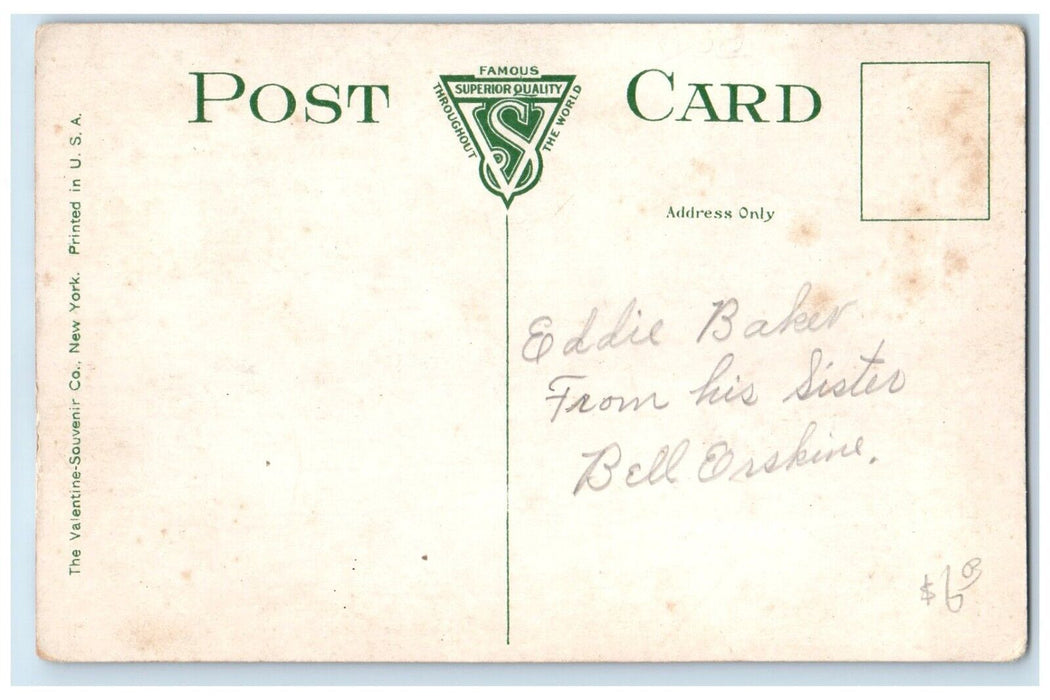 POST CARD
FAMOUS
SUPERIOR QUALITY
THROUGHOUT THE WORLD
VS
Address Only
The Valentine-Souvenir Co., New York. Printed in U. S. A.
Eddie Baker
From his Sister
Bell Erskine.
$6 00